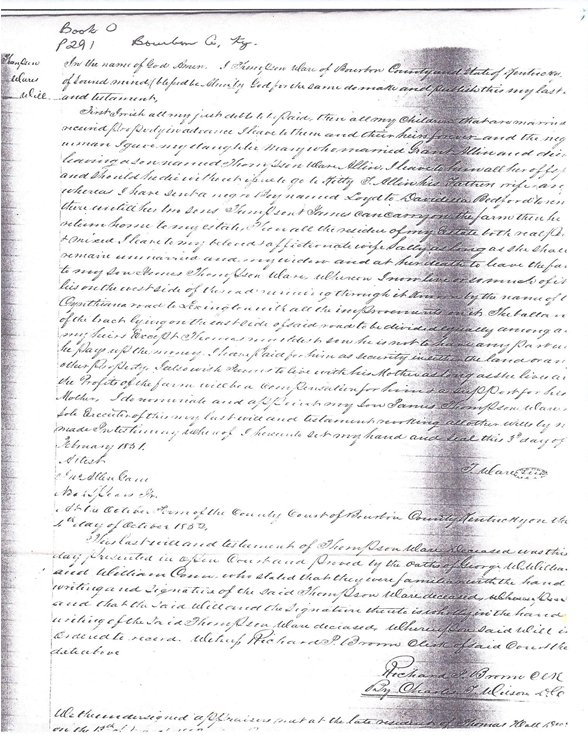 Book O
P291 Bourbon Co, Ky.
Thompson
Wares
Will
In the name of God Amen. I Thompson Ware of Bourbon County and State of Kentucky
of sound mind blessed be Almity God for the same do make and publish this my last
and testament,
First I wish all my just debts to be paid, then all my Children that are married
received property in advance I leave to them and their heirs forever and the neg
woman I gave my daughter Mary who married Allin and die
leaving a son named Thompson Ware Allin, I leave to him all her off
and should he die without to go to Kitty Allin his Fathers wife, an
whereas I have sent a negro boy named Loyd to Bedford to
there untill her two sons Thompson & James can carry on the farm then he
return home to my estate, Then all the residue of my Estate both real
& mixed I leave to my beloved & affectionate wife Sally as long as she shall
remain unmarried and my widow and at her death to leave the far
to my son James Thompson Ware wherein I now live or so much of it
lies on the west side of the road running through it known by the name of
Cynthiana road to Lexington with all the improvements on it The balan
of the tract lying on the east side of said road to be divided equally among a
my heirs Except Thomas my oldest son he is not to have any part un
he pays up the money I have paid for him as security in either land or an
other property. I also wish James to live with his Mother as long as she lives an
the Profits of the farm will be a Compensation for him & a support for his
Mother. I do nominate and appoint my Son James Thompson Ware
sole Executor of this my last will and testament revoking all other wills by
made In testimony whereof I hereunto set my hand and seal this 3d day of
February 1851.
Attest
T. Ware Seal
At the October Term of the County Court of Bourbon County Kentucky on the
4th day of October 1852,
This last will and testament of Thompson Ware deceased was this
day presented in open Court and proved by the oaths of George W William
and William who stated that they were familiar with the hand
writing and signature of the said Thompson Ware deceased,
and that the said Will and the signature thereto is wholly in the hand
writing of the said Thompson Ware deceased, Whereupon said Will is
ordered to record. Richard T. Brown Clerk of said Court
Richard T. Brown Clk
By Charles T. Wilson D.C.
We the undersigned appraisers met at the late residence of Thomas Hall
on the 13th